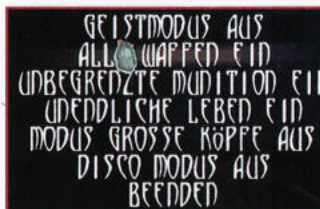 GEISTMODUS AUS
ALLE WAFFEN EIN
UNBEGRENZTE MUNITION EIN
UNENDLICHE LEBEN EIN
MODUS GROSSE KÖPFE AUS
DISCO MODUS AUS
BEENDEN